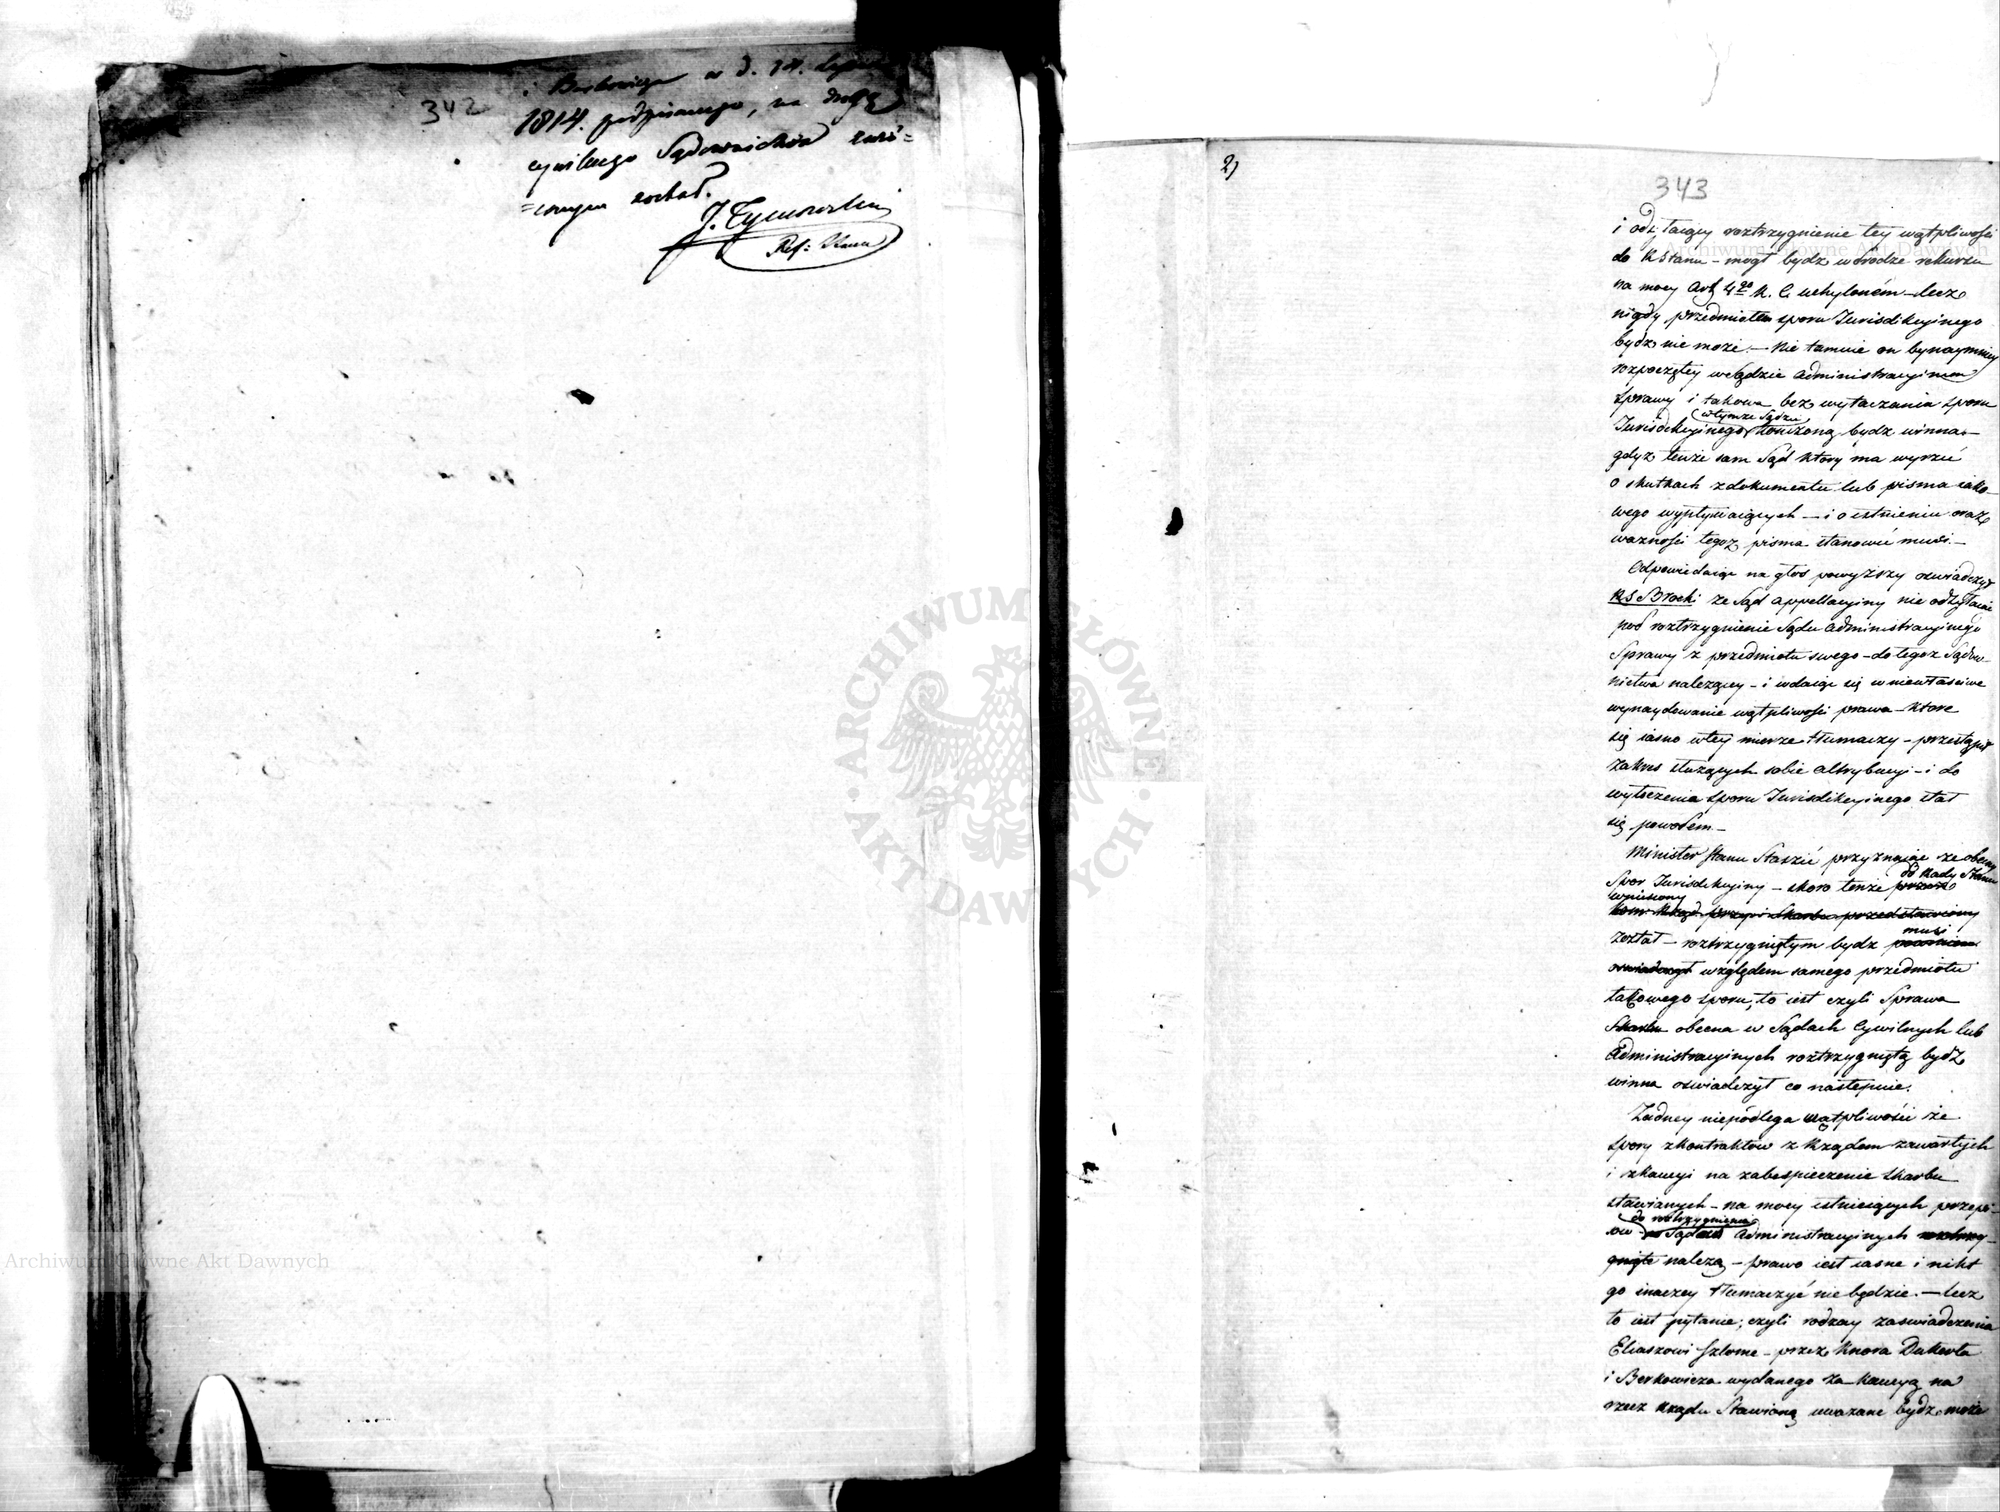 342
i Berkowicza w d. 14. Lipca
1814. podpisanego, na drogę
cywilnego Sądownictwa zwró=
=conym został.
J. Tymowski
Ref: Stanu
2)
343
i odsyłaiący roztrzygnienie tey wątpliwości
do R Stanu – mogł bydz w drodze rekursu
na mocy Art 4go K. C. uchylonem – lecz
nigdy przedmiotem sporu Jurisdikcyinego
bydz nie może. – Nie tamuie on bynaymniey
rozpoczętey w Sądzie Administracyinem
Sprawy i takowa bez wytaczania sporu
w tymze Sądzie
Jurisdikcyinego kończoną bydz winna –
gdyz tenże sam Sąd ktory ma wyrzec
o skutkach z dokumentu lub pisma iako–
wego wypływaiących – i o istnieniu oraz
ważności tegoz pisma stanowić musi. –
Odpowiedaiąc na głos powyższy oswiadczył
RS Brocki ze Sąd appellacyiny nie odsyłaiąc
pod roztrzygnienie Sądu Administracyinego
Sprawy z przedmiotu swego – do tegoz Sądow–
nictwa należącey – i wdaiąc się w niewłasciwe
wynaydowanie wątpliwości prawa – ktore
się iasno w tey mierze tłumaczy – przestąpił
zakres służących sobie attrybucyi – i do
wytoczenia sporu Jurisdikcyinego stał
się powodem –
Minister Stanu Staszic przyznaiąc ze obecny
od Rady Stanu
Spor Jurisdikcyiny – skoro tenże przez
wniesiony
Kom: Rząd: przy: i Skarbu przedstawiony
musi
został – roztrzygniętym bydz powinien
oswiadczył względem samego przedmiotu
takowego sporu, to iest czyli Sprawa
Skarbu obecna w Sądach Cywilnych lub
Administracyinych roztrzygniętą bydz
winna oswiadczył co następuie.
Żadney niepodlega wątpliwości że
spory z kontraktów z Rządem zawartych
i z kaucyi na zabespieczenie Skarbu
stawianych – na mocy istnieiących przepi–
do roztrzygnienia
sow – Sądów Administracyinych roztrzy–
gnięte należą – prawo iest iasne i nikt
go inaczey tłumaczyć nie będzie. – Lecz
to iest pytanie; czyli rodzay zaswiadczenia
Eliaszowi Szlome – przez Knora Dukerta
i Berkowicza wydanego za kaucyą na
rzecz Rządu Stawioną uważane bydz może